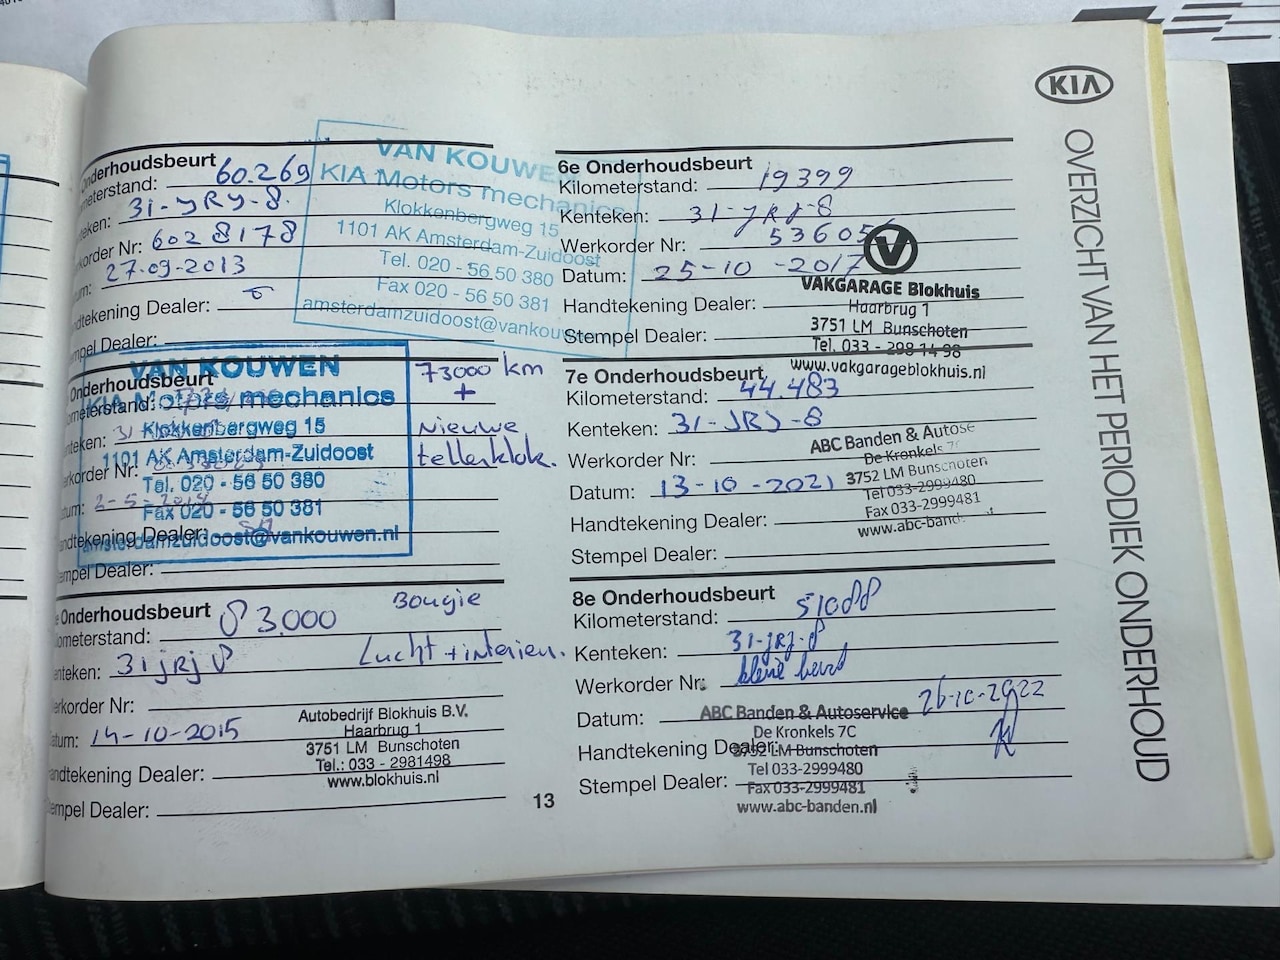 KIA
OVERZICHT VAN HET PERIODIEK ONDERHOUD
Onderhoudsbeurt
60.269
31-JRJ-8.
Nr: 6028178
27-09-2013
Handtekening Dealer:
Stempel Dealer:
VAN KOUWEN
KIA Motors mechanics
Klokkenbergweg 15
1101 AK Amsterdam-Zuidoost
Tel. 020 - 56 50 380
Fax 020 - 56 50 381
amsterdamzuidoost@vankouw
Onderhoudsbeurt
Nr:
2-5-2014
Dealer:
Stempel Dealer:
VAN KOUWEN
KIA Motors mechanics
Klokkenbergweg 15
1101 AK Amsterdam-Zuidoost
Tel. 020 - 56 50 380
Fax 020 - 56 50 381
amsterdamzuidoost@vankouwen.nl
73000 km
+
nieuwe
tellerklok.
Onderhoudsbeurt
83.000
31 jrj 8
Nr:
14-10-2015
Handtekening Dealer:
Stempel Dealer:
Bougie
Lucht + interieur.
Autobedrijf Blokhuis B.V.
Haarbrug 1
3751 LM Bunschoten
Tel.: 033 - 2981498
www.blokhuis.nl
6e Onderhoudsbeurt
Kilometerstand: 19399
Kenteken: 31-JRJ-8
Werkorder Nr: 53605
Datum: 25-10-2017
Handtekening Dealer:
Stempel Dealer:
V
VAKGARAGE Blokhuis
Haarbrug 1
3751 LM Bunschoten
Tel. 033 - 298 14 98
www.vakgarageblokhuis.nl
7e Onderhoudsbeurt
Kilometerstand: 44.483
Kenteken: 31-JRJ-8
Werkorder Nr:
Datum: 13-10-2021
Handtekening Dealer:
Stempel Dealer:
ABC Banden & Autose
De Kronkels 7
3752 LM Bunschoten
Tel 033-2999480
Fax 033-2999481
www.abc-band
8e Onderhoudsbeurt
Kilometerstand: 51088
Kenteken: 31-jrj-8
Werkorder Nr: kleine beurt
Datum: 26-10-2022
Handtekening Dealer:
Stempel Dealer:
ABC Banden & Autoservice
De Kronkels 7C
3752 LM Bunschoten
Tel 033-2999480
Fax 033-2999481
www.abc-banden.nl
13